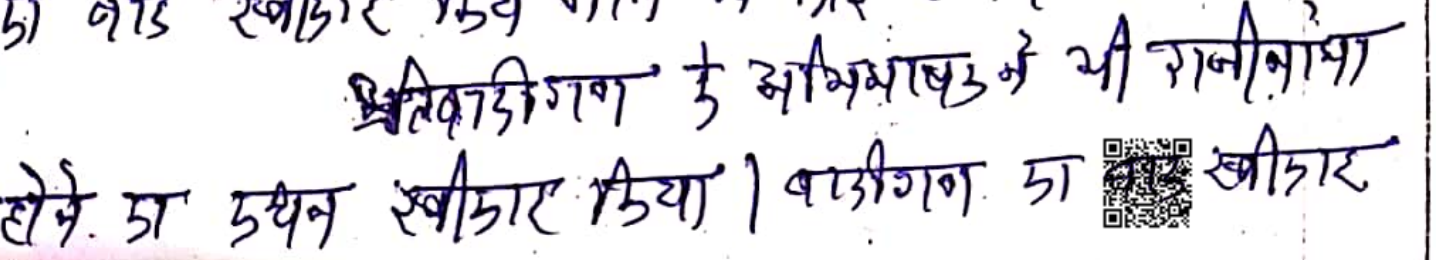 का वाद स्वीकार किये जाने
प्रतिवादीगण के अभिभाषक ने भी राजीनामा
होने का कथन स्वीकार किया। वादीगण का वाद स्वीकार